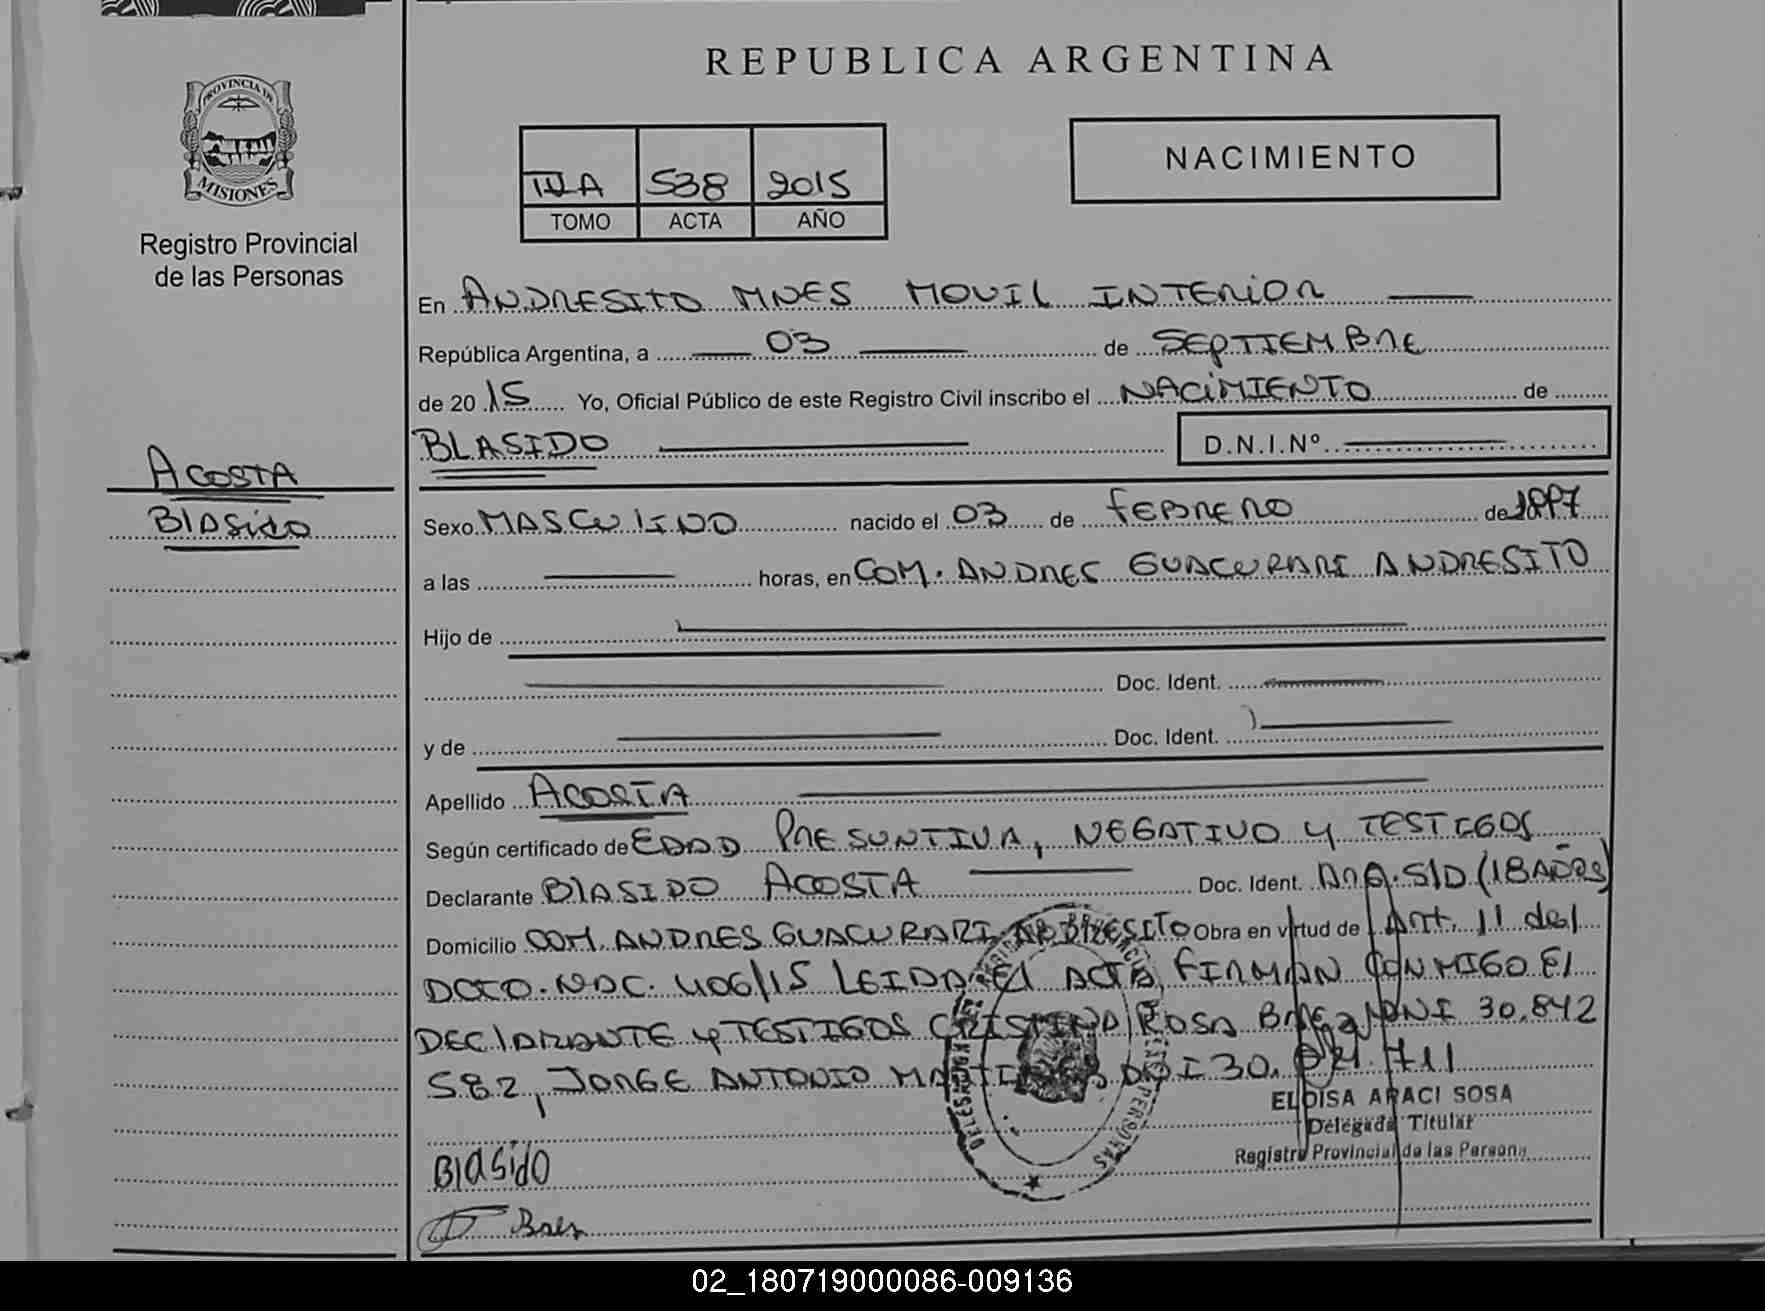 PROVINCIA DE
MISIONES
Registro Provincial
de las Personas
ACOSTA
BlASido
REPUBLICA ARGENTINA
NACIMIENTO
538 2015
TOMO ACTA AÑO
En ANDRESITO MNES MOVIL INTERIOR
República Argentina, a 03 de SEPTIEMBRE
de 20 15 Yo, Oficial Público de este Registro Civil inscribo el NACIMIENTO de
BLASIDO D.N.I.Nº
Sexo MASCULINO nacido el 03 de FEBRERO de 1997
a las horas, en COM. ANDRES GUACURARI ANDRESITO
Hijo de
Doc. Ident.
y de Doc. Ident.
Apellido ACOSTA
Según certificado de EDAD PRESUNTIVA, NEGATIVO y TESTIGOS
Declarante BlASIDO ACOSTA Doc. Ident. ARG. S/D (18 AÑOS)
Domicilio COM. ANDRES GUACURARI ANDRESITO Obra en virtud de Art. 11 del
DCTO. NAC. 406/15 LEIDA El ACTA, FIRMAN CONMIGO El
DEClARANTE y TESTIGOS CRISTINA ROSA BAEZ DNI 30.842
582, JORGE ANTONIO MARTINEZ DNI 30. 711
ELOISA ARACI SOSA
Delegada Titular
Registro Provincial de las Persona
BlASido
Baez
02_180719000086-009136